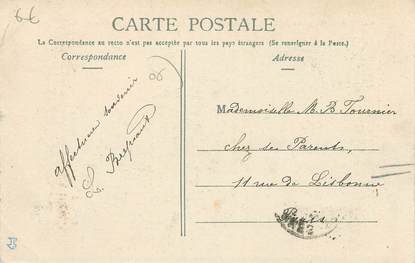 6€
CARTE POSTALE
La Correspondance au recto n'est pas acceptée par tous les pays étrangers (Se renseigner à la Poste.)
Correspondance
Adresse
affectueux souvenir
Mademoiselle M. B. Tournier
chez ses Parents,
11 rue de Lisbonne
Paris